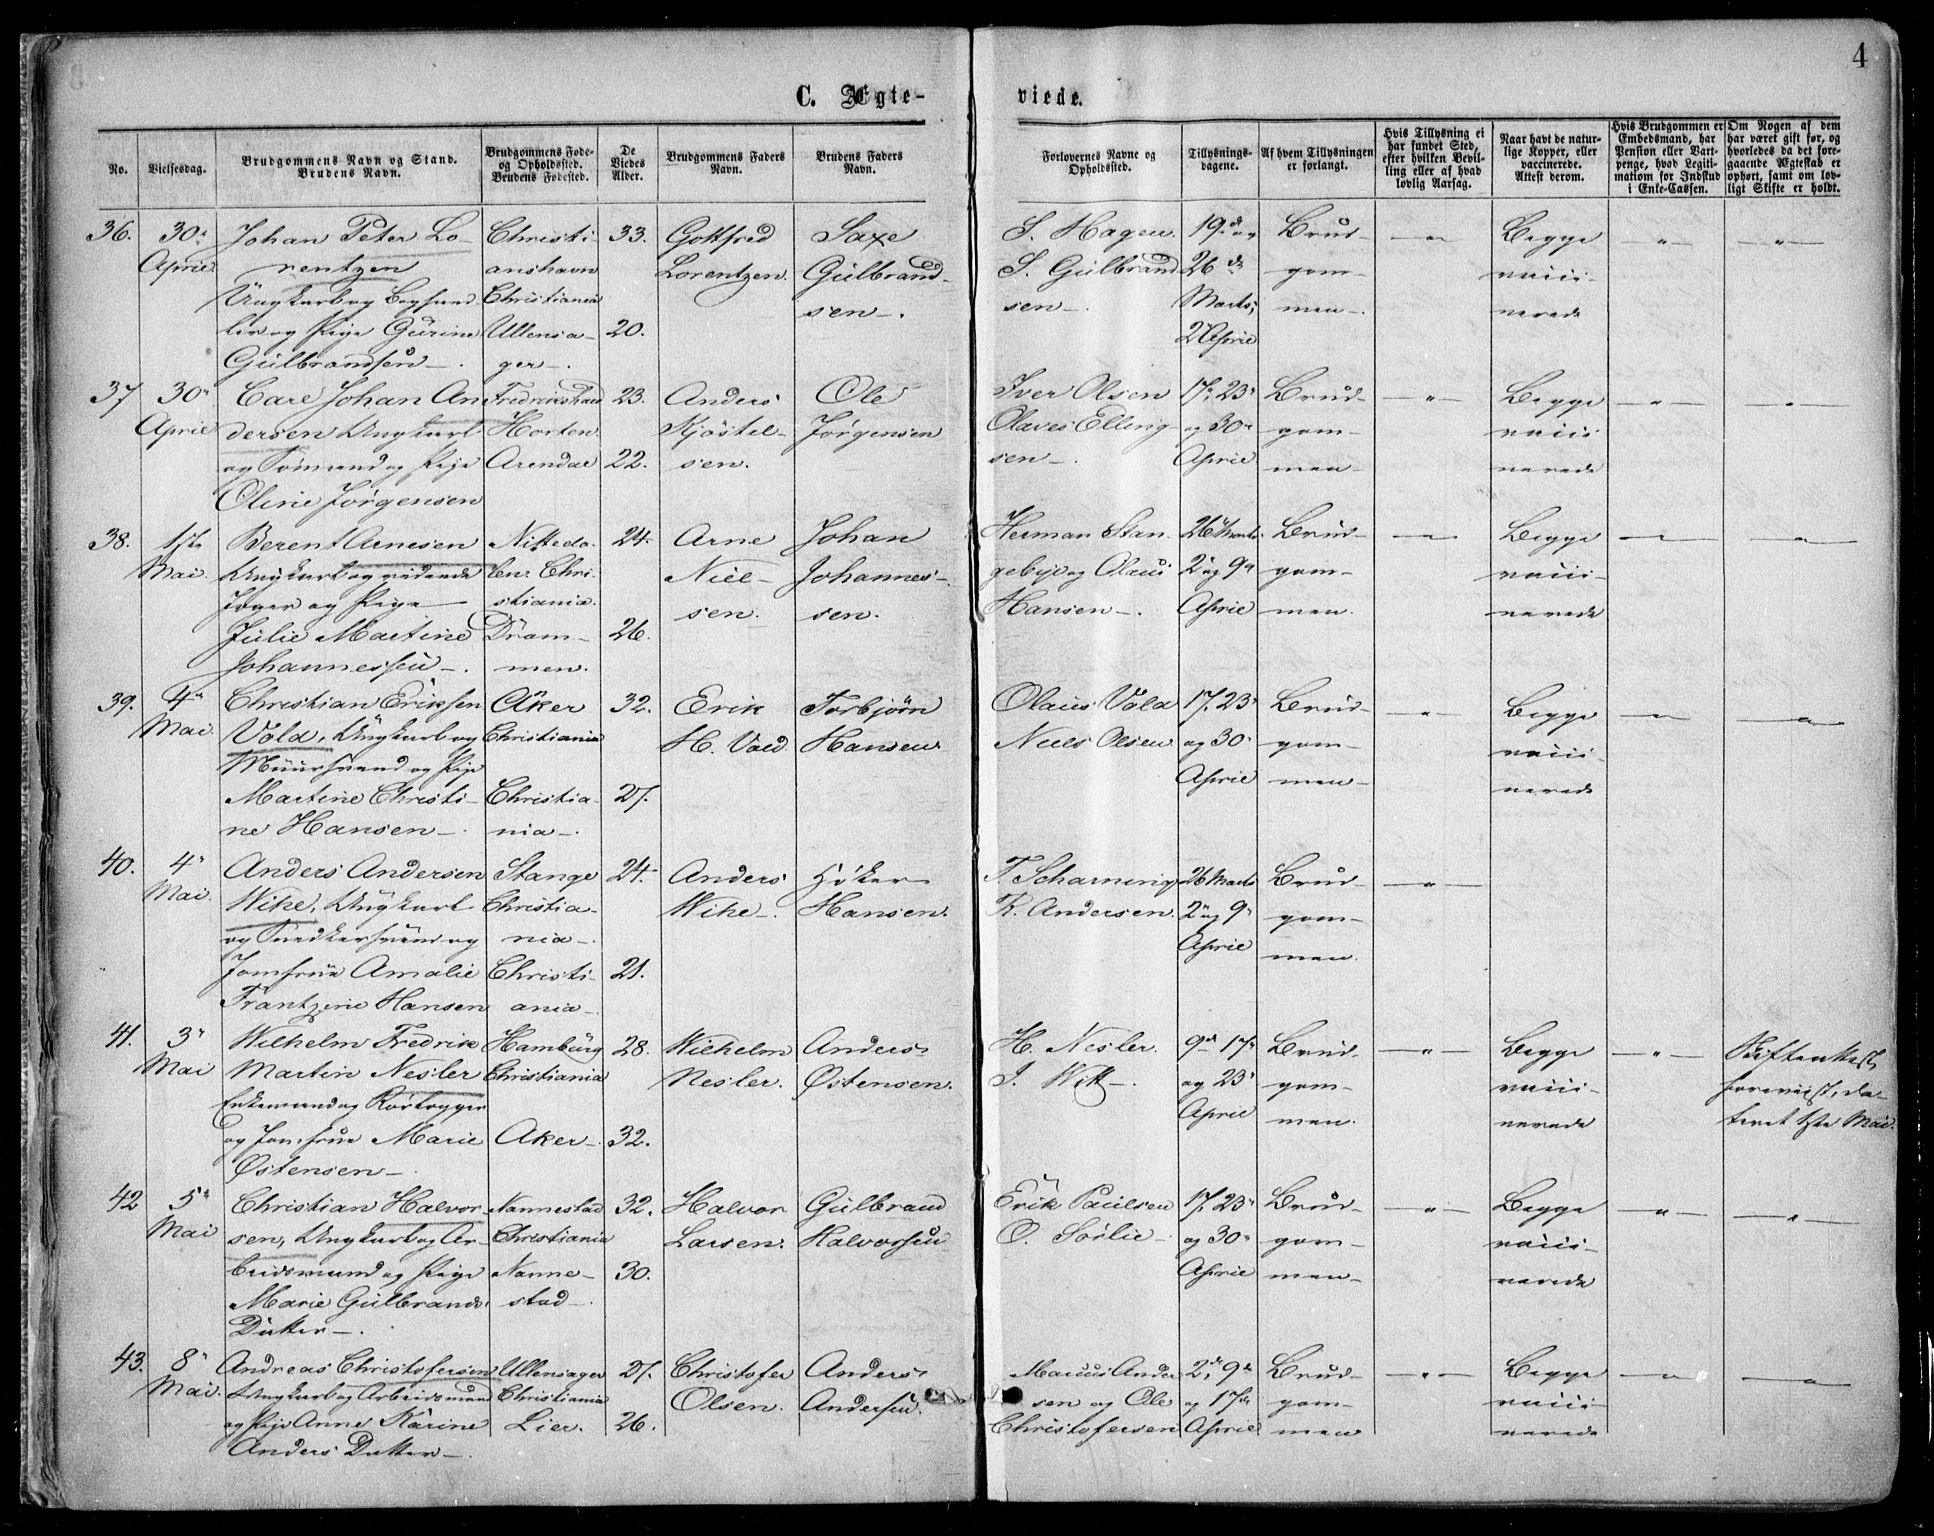 4
C. Ægte- viede.
No.
Vielsesdag.
Brudgommens Navn og Stand.
Brudens Navn.
Brudgommens Føde-
og Opholdssted.
Brudens Fødested.
De
Viedes
Alder.
Brudgommens Faders
Navn.
Brudens Faders
Navn.
Forlovernes Navne og
Opholdssted.
Tillysnings-
dagene.
Af hvem Tillysningen
er forlangt.
Hvis Tillysning ei
har fundet Sted,
efter hvilken Bevil-
ling eller af hvad
lovlig Aarsag.
Naar havt de natur-
lige Kopper, eller
vaccinerede.
Attest derom.
Hvis Brudgommen er
Embedsmand, har
Pension eller Vart-
penge, hvad Legiti-
mation for Indskud
i Enke-Cassen.
Om Nogen af dem
har været gift før, og
hvorledes da det fore-
gaaende Ægteskab er
ophørt, samt om lov-
ligt Skifte er holdt.
36.
30te
April
Johan Peter Lo-
rentzen
Ungkarl og
og Pige Gurine
Gulbrandsen
Christi-
anshavn
Christiania
Ullensa-
ger
33.
20.
Gottfred
Lorentzen.
Saxe
Gulbrand-
sen.
S. Hagen.
S. Gulbrand
sen
19de og
26de
Marts,
2 April
Brud-
gom-
men.
Begge
vacci-
nerede
37
30te
April
Carl Johan An
dersen Ungkarl
og Tømmermand og Pige
Oline Jørgensen
Fredrikshald
Horten
Arendal
23.
22.
Anders
Kjøstel-
sen.
Ole
Jørgensen
Iver Olsen
Olaves Elling
sen
17, 23
og 30te
April
Brud-
gom-
men
Begge
vacci-
nerede
38.
1ste
Mai.
Berent Arnesen
Ungkarl og ridende
Jæger og Pige
Julie Martine
Johannessen
Nitteda-
len Chri-
stiania.
Dram-
men.
24.
26.
Arne
Niel-
sen.
Johan
Johannes-
sen.
Herman Stan-
gebye og Olaus
Hansen
26 Marts
2 og 9de
April
Brud-
gom-
men.
Begge
vacci-
nerede
39.
4de
Mai
Christian Eriksen
Vold, Ungkarl og
Muursvend og Pige
Martine Christi-
ne Hansen
Aker
Christiania
Christia-
nia
32.
27.
Erik
H. Vold
Torbjørn
Hansen
Olaus Vold
Niels Olsen
17, 23
og 30
April
Brud-
gom-
men
Begge
vacci-
nerede
40.
4de
Mai.
Anders Andersen
Wike, Ungkarl
og Snedkersvend og
Jomfrue Amalie
Frantzine Hansen
Stange
Christia-
nia
Christi-
ania
24.
21.
Anders
Wike
Høker
Hansen.
T. Scharning
K. Andersen
26 Marts
2 og 9
April
Brud-
gom-
men.
41.
3de
Mai
Wilhelm Fredrik
Martin Nesler
Enkemand og
og Jomfrue Marie
Østensen
Hamburg
Christiania
Aker
28.
32.
Wilhelm
Nesler.
Anders
Østensen.
H. Nesler.
J. Witt
9de 17de
og 23
April
Brud-
gom-
men.
Begge
vacci-
nerede
Skifteattest
foreviist, da-
teret 1ste Mai.
42
5te
Mai
Christian Halvor
sen, Ungkarl og Ar-
beidsmand og Pige
Marie Gulbrands
Datter
Nannestad
Christiania
Nanne-
stad
32.
30.
Halvor
Larsen.
Gulbrand
Halvorsen
Erik Paulsen
O. Sørlie
17, 23
og 30te
April
Brud-
gom-
men
Begge
vacci-
nerede
43.
8de
Mai
Andreas Christofersen
Ungkarl og Arbeidsmand
og Pige Anne Karine
Anders Datter
Ullensager
Christiania
Lier.
27.
26.
Christofer
Olsen.
Anders
Andersen.
Marius Ander
sen og Ole
Christofersen
2de, 9de
og 17de
April
Brud-
gom-
men
Begge
vacci-
nerede